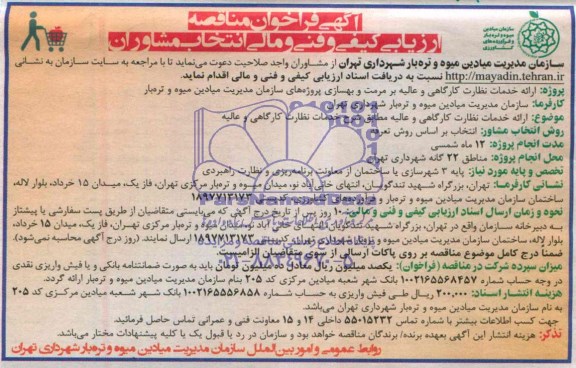 آگهی فراخوان مناقصه
ارزیابی کیفی و فنی و مالی انتخاب مشاوران
سازمان میادین
میوه و تره‌بار
و فرآورده‌های
کشاورزی
سازمان مدیریت میادین میوه و تره‌بار شهرداری تهران از مشاوران واجد صلاحیت دعوت می‌نماید تا با مراجعه به سایت سازمان به نشانی
http://mayadin.tehran.ir نسبت به دریافت اسناد ارزیابی کیفی و فنی و مالی اقدام نماید.
پروژه: ارائه خدمات نظارت کارگاهی و عالیه بر مرمت و بهسازی پروژه‌های سازمان مدیریت میادین میوه و تره‌بار
کارفرما: سازمان مدیریت میادین میوه و تره‌بار شهرداری تهران
موضوع: ارائه خدمات نظارت کارگاهی و عالیه مطابق شرح خدمات نظارت کارگاهی و عالیه
روش انتخاب مشاور: انتخاب بر اساس روش تعرفه
مدت انجام پروژه: ۱۲ ماه شمسی
محل انجام پروژه: مناطق ۲۲ گانه شهرداری تهران
تخصص و پایه مورد نیاز: پایه ۳ شهرسازی یا ساختمان از معاونت برنامه‌ریزی و نظارت راهبردی
نشانی کارفرما: تهران، بزرگراه شهید تندگویان، انتهای خالی‌آباد نو، میدان میوه و تره‌بار مرکزی تهران، فاز یک، میدان ۱۵ خرداد، بلوار لاله،
ساختمان سازمان مدیریت میادین میوه و تره‌بار و فرآورده‌های کشاورزی ۱۸۹۷۷۱۳۱۷۳
نحوه و زمان ارسال اسناد ارزیابی کیفی و فنی و مالی: ۱۰ روز پس از تاریخ درج آگهی که می‌بایستی متقاضیان از طریق پست سفارشی یا پیشتاز
به دبیرخانه سازمان واقع در تهران، بزرگراه شهید تندگویان، انتهای خالی‌آباد نو، میدان میوه و تره‌بار مرکزی تهران، فاز یک، میدان ۱۵ خرداد،
بلوار لاله، ساختمان سازمان مدیریت میادین میوه و تره‌بار شهرداری تهران کدپستی ۱۸۹۷۷۱۳۱۷۳ ارسال نمایند. (روز درج آگهی محاسبه نمی‌شود).
ضمنا درج کامل موضوع مناقصه بر روی پاکات ارسالی از سوی متقاضیان الزامیست.
میزان سپرده شرکت در مناقصه (فراخوان): یکصد میلیون ریال معادل ده میلیون تومان باید به صورت ضمانتنامه بانکی و یا فیش واریزی نقدی
در وجه حساب شماره ۱۰۰۲۱۶۵۵۶۸۴۵۷ بانک شهر شعبه میادین مرکزی کد ۲۰۵ بنام سازمان مدیریت میوه و تره‌بار ارائه گردد.
هزینه انتشار اسناد: ۲۰۰,۰۰۰ ریال طی فیش واریزی به حساب شماره ۱۰۰۲۱۶۵۵۵۶۸۵۸ بانک شهر شعبه میادین مرکزی کد ۲۰۵
به نام سازمان مدیریت میادین میوه و تره‌بار شهرداری تهران می‌باشد.
جهت کسب اطلاعات بیشتر با شماره تماس ۵۵۰۱۵۲۳۲ داخلی ۱۴ و ۱۵ معاونت فنی و عمرانی تماس حاصل فرمائید.
تذکر: هزینه انتشار این آگهی بعهده برنده/ برندگان مناقصه خواهد بود و سازمان در رد یا قبول یک یا کلیه پیشنهادات مختار می‌باشد.
روابط عمومی و امور بین‌الملل سازمان مدیریت میادین میوه و تره‌بار شهرداری تهران